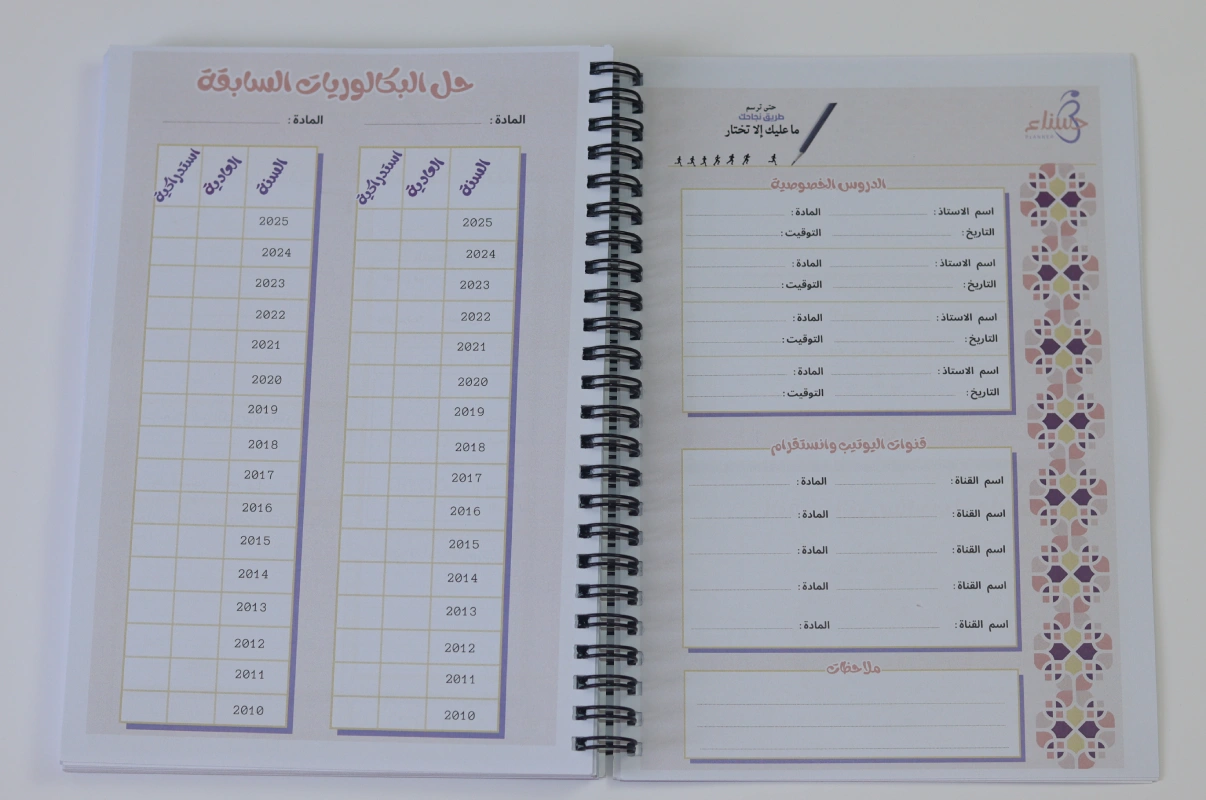 حل البكالوريات السابقة
المادة :
المادة :
السنة العادية استدراكية
2025
2024
2023
2022
2021
2020
2019
2018
2017
2016
2015
2014
2013
2012
2011
2010
السنة العادية استدراكية
2025
2024
2023
2022
2021
2020
2019
2018
2017
2016
2015
2014
2013
2012
2011
2010
حسناء
حتى ترسم
طريق نجاحك
ما عليك إلا تختار
الدروس الخصوصية
اسم الاستاذ : المادة :
التاريخ : التوقيت :
اسم الاستاذ : المادة :
التاريخ : التوقيت :
اسم الاستاذ : المادة :
التاريخ : التوقيت :
اسم الاستاذ : المادة :
التاريخ : التوقيت :
قنوات اليوتيب وانستقرام
اسم القناة : المادة :
اسم القناة : المادة :
اسم القناة : المادة :
اسم القناة : المادة :
اسم القناة : المادة :
ملاحظات